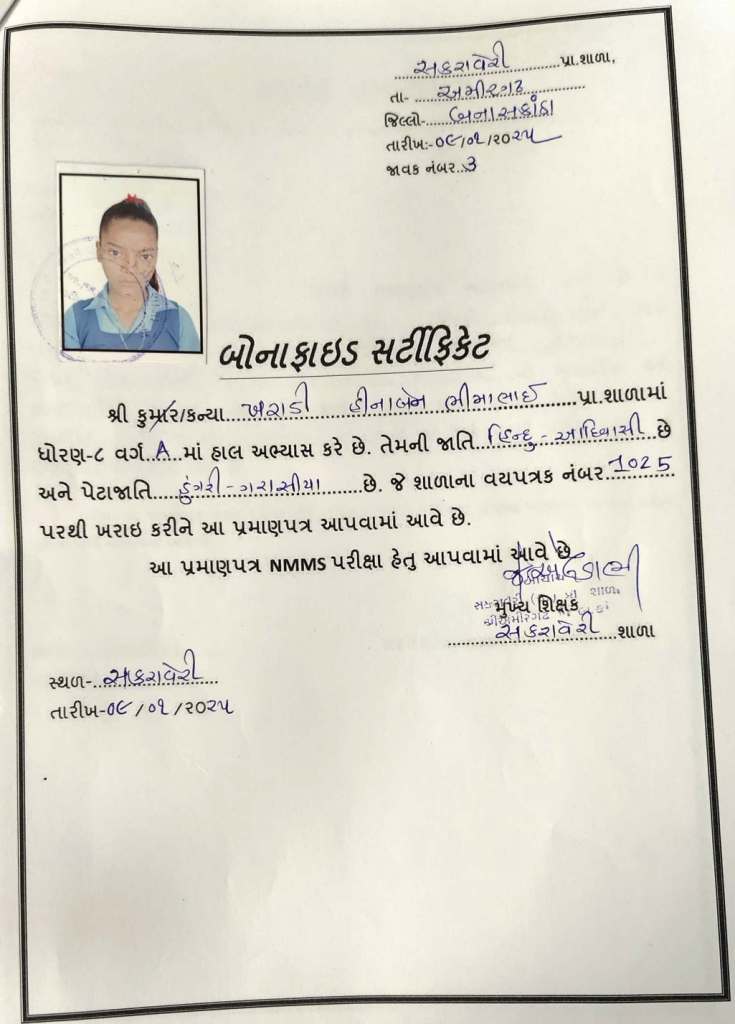 સકરાવેરી પ્રા.શાળા,
તા- અમીરગઢ
જિલ્લો- બનાસકાંઠા
તારીખ:-૦૯/૦૧/૨૦૨૫
જાવક નંબર..3
બોનાફાઇડ સર્ટીફિકેટ
શ્રી કુમાર/કન્યા ખરાડી હીનાબેન ભીમાભાઈ પ્રા.શાળામાં
ધોરણ-૮ વર્ગ A માં હાલ અભ્યાસ કરે છે. તેમની જાતિ હિન્દુ - આદિવાસી છે
અને પેટાજાતિ ડુંગરી - ગરાસીયા છે. જે શાળાના વયપત્રક નંબર 1025
પરથી ખરાઇ કરીને આ પ્રમાણપત્ર આપવામાં આવે છે.
આ પ્રમાણપત્ર NMMS પરીક્ષા હેતુ આપવામાં આવે છે
મુખ્ય શિક્ષક
સકરાવેરી શાળા
સ્થળ-સકરાવેરી
તારીખ-૦૯/૦૧/૨૦૨૫